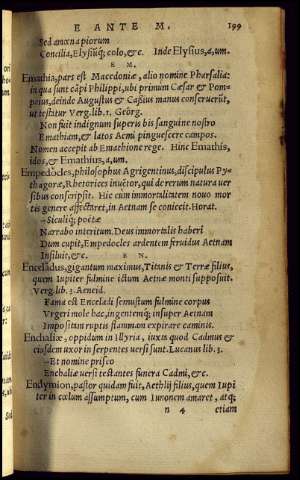 E ANTE M. 199
Sed amœna piorum
Concilia, Elysiúq; colo, &c. Inde Elysius, a, um.
E M.
Emathia, pars est Macedoniæ, alio nomine Pharsalia:
in qua sunt cãpi Philippi, ubi primum Cæsar & Pom-
peius, deinde Augustus & Caßius manus conseruerũt,
ut testitur Verg. lib. 1. Geörg.
Non fuit indignum superis bis sanguine nostro
Emathiam, & latos Aemi pinguescere campos.
Nomen accepit ab Emathione rege. Hinc Emathis,
idos, & Emathius, a, um.
Empedocles, philosophus Agrigentinus, discipulus Py-
thagoræ, Rhetorices inuẽtor, qui de rerum natura uer
sibus conscripsit. Hic cum immortalitem nouo mor
tis genere affectaret, in Aetnam se coniecit. Horat.
—Siculiq; poëtæ
Narrabo interitum. Deus immortalis haberi
Dum cupit, Empedocles ardentem feruidus Aetnam
Insiluit, &c.
E N.
Enceladus, gigantum maximus, Titanis & Terræ filius,
quem Iupiter fulmine ictum Aetnæ monti supposuit.
Verg. lib. 3. Aeneid.
Fama est Enceladi semustum fulmine corpus
Vrgeri mole hac, ingentemq; insuper Aetnam
Impositam ruptis flammam expirare caminis.
Enchaliæ, oppidum in Illyria, iuxta quod Cadmus &
eiusdem uxor in serpentes uersi sunt. Lucanus lib. 3.
—Et nomine prisco
Encheliæ uersi testantes funera Cadmi, &c.
Endymion, pastor quidam fuit, Aethlij filius, quem Iupi
ter in cœlum assumptum, cum Iunonem amaret, atq;
n 4 etiam